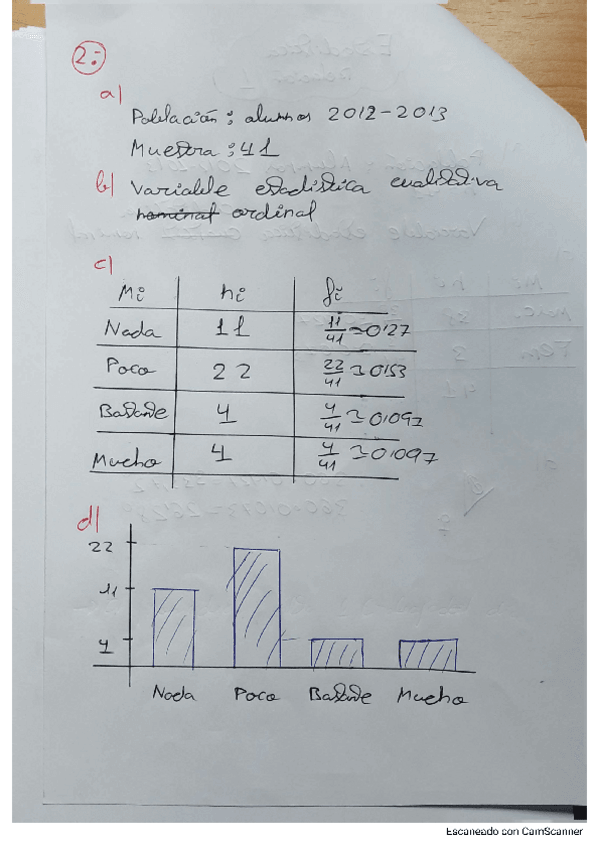 2:
a)
Población: alumnos 2012-2013
Muestra: 41
b) Variable estadística cualitativa
nominal ordinal
c)
Mi ni fi
Nada 11 11/41 ≃ 0'27
Poco 22 22/41 ≃ 0'53
Bastante 4 4/41 ≃ 0'097
Mucho 4 4/41 ≃ 0'097
d)
22
11
4
Nada Poco Bastante Mucho
Escaneado con CamScanner